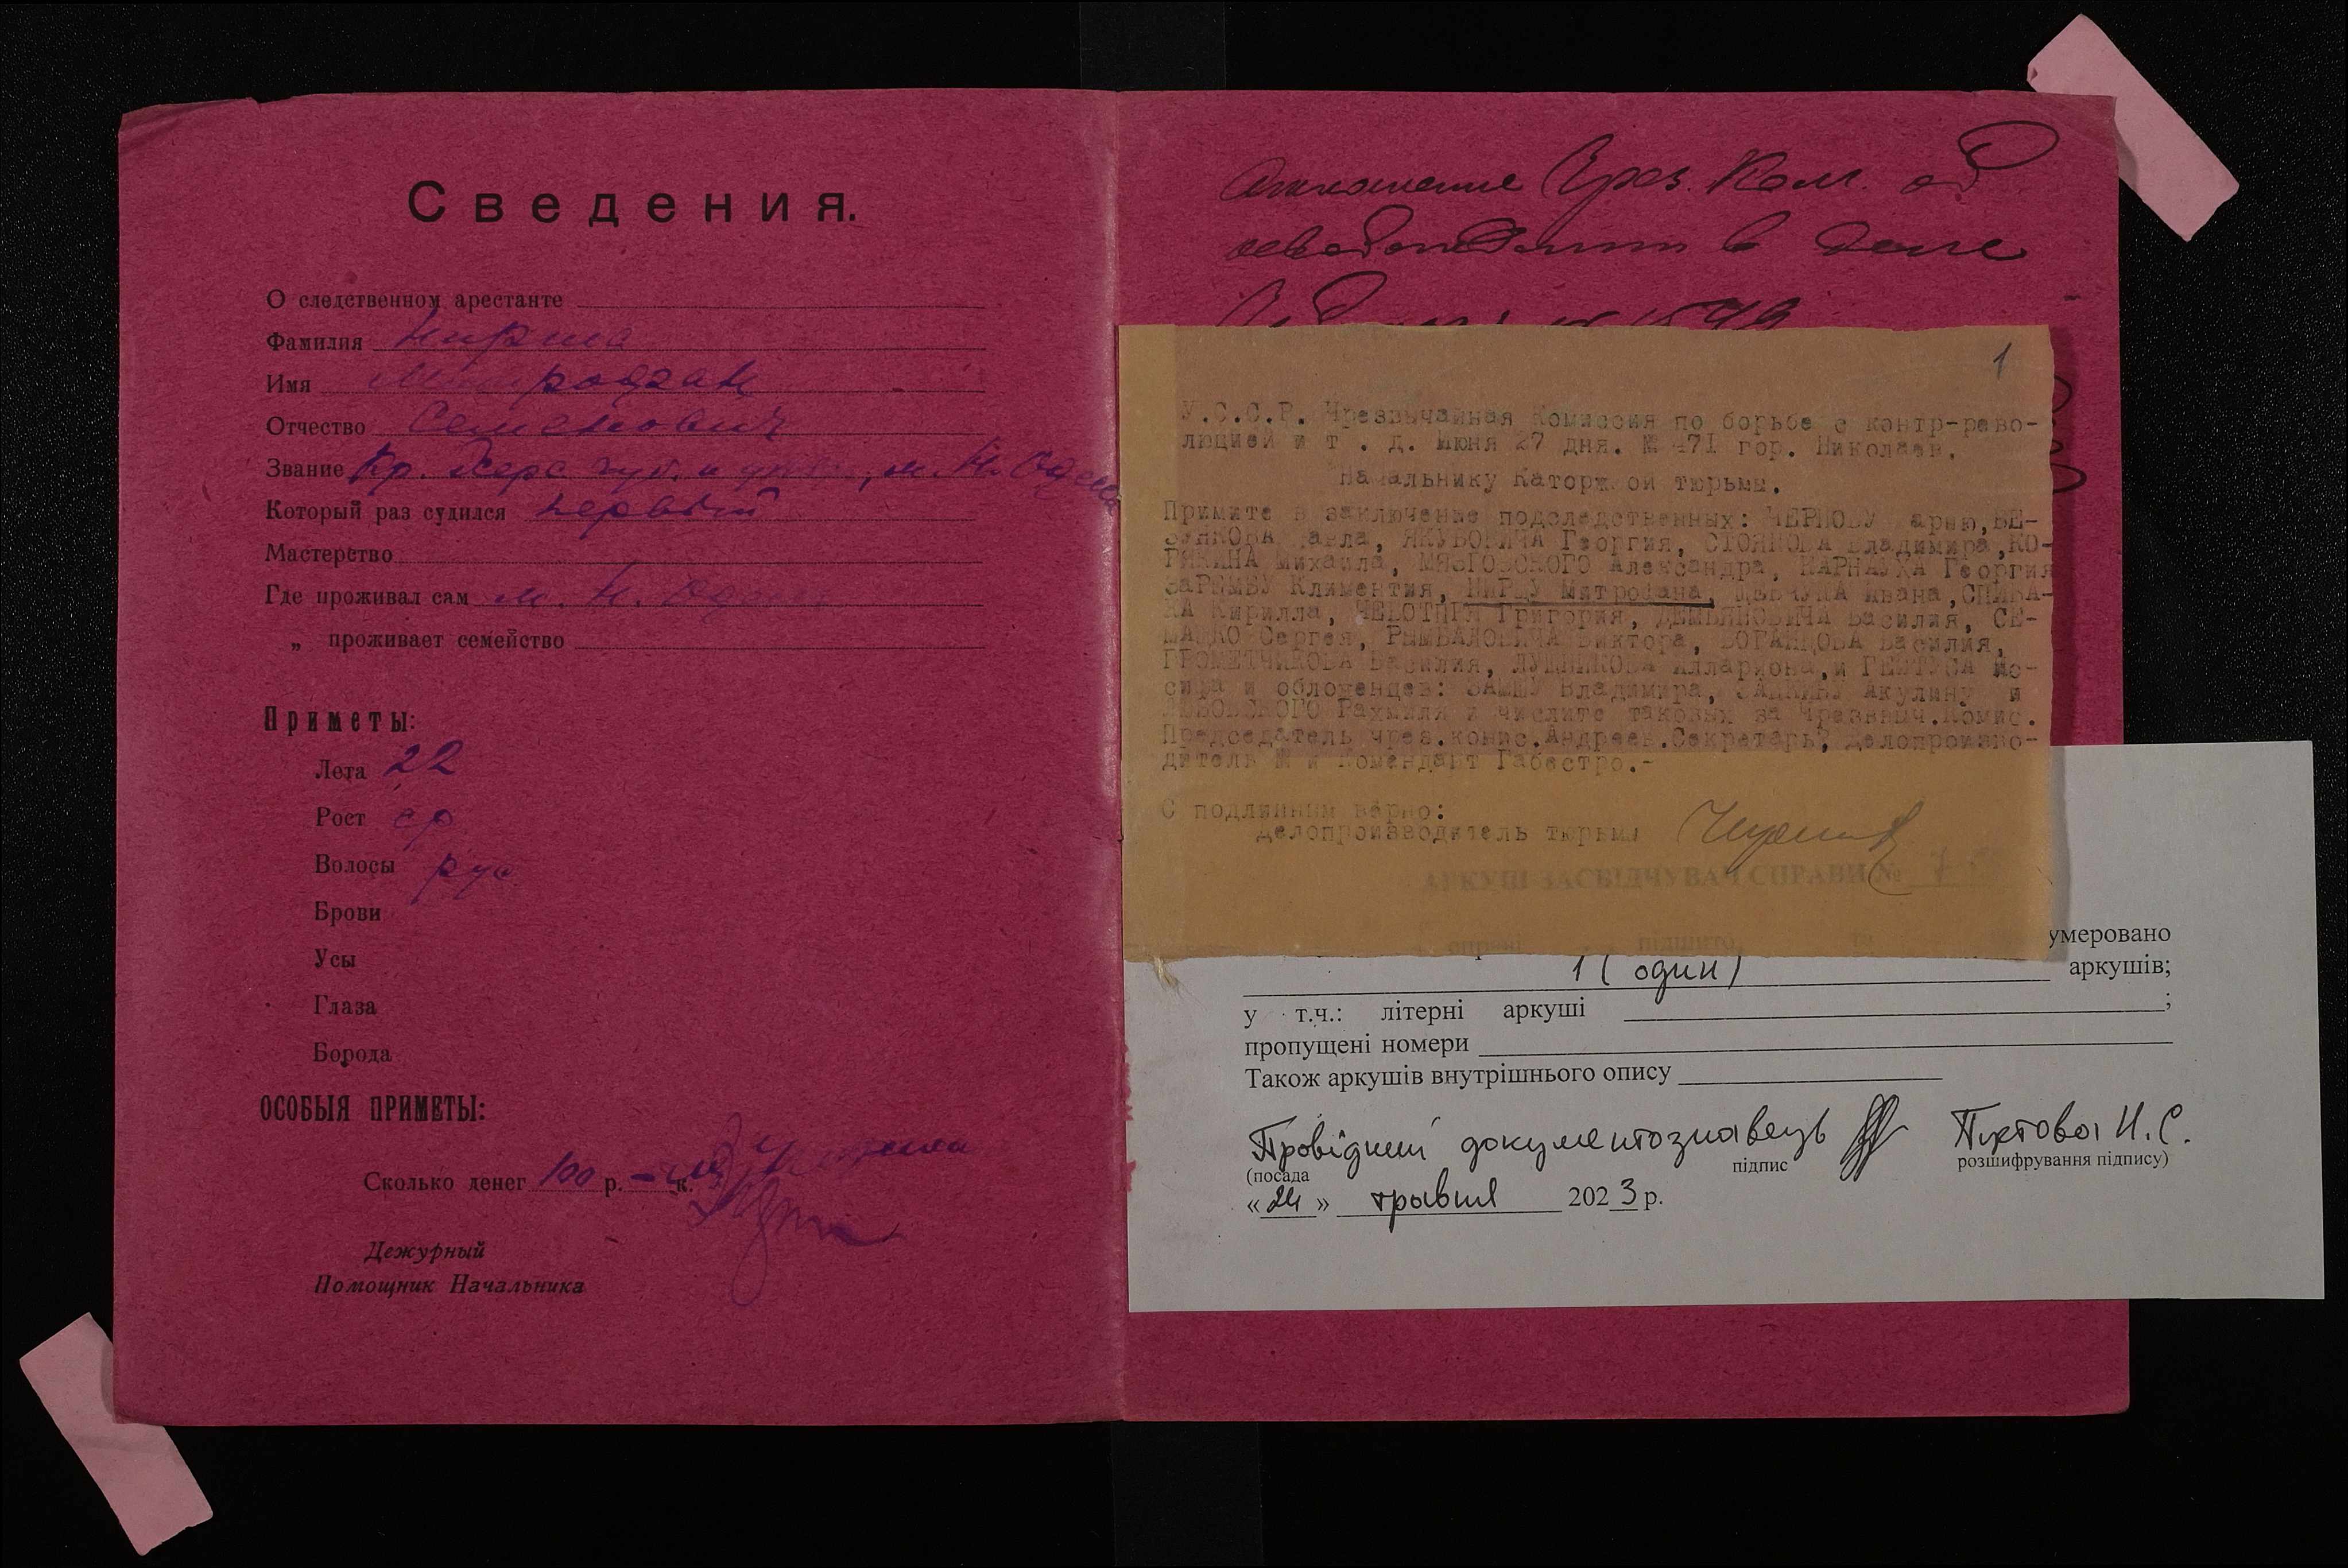 Сведения.
О следственном арестанте
Фамилия Нирца
Имя Митрофан
Отчество Семенович
Звание Кр. Херс губ. и у м. Н. Одесса
Который раз судился первый
Мастерство
Где проживал сам м. Н. Одесса
„ проживает семейство
Приметы:
Лета 22
Рост ср
Волосы рус
Брови
Усы
Глаза
Борода
ОСОБЫЯ ПРИМЕТЫ:
Сколько денег 100 р. — к.
Дежурный
Помощник Начальника
Отношение Чрез. Ком. об
освобождении в деле
1
У.С.С.Р. Чрезвычайная Комиссия по борьбе с контр-рево-
люцией и т . д. Июня 27 дня. № 471 гор. Николаев.
Начальнику Каторжной тюрьмы.
Примите в заключение подследственных: ЧЕРНОВУ Марию,
Павла, ЯКУБОВИЧА Георгия, СТОЯНОВА Владимира,КО-
Михаила, МЯЗГОВСКОГО Александра, КАРНАУХА Георгия
ЗАРЕМБУ Климентия, НИРЦУ Митрофана, ШЕВЧУКА Ивана,СПИВА-
КА Кирилла, ЧЕБОТАРЯ Григория, ДЕМЬЯНОВИЧА Василия, СЕ-
МАШКО Сергея, РЫМБАЛОВИЧА Виктора, БОГАНЦОВА Василия,
Василия, ЛУШНИКОВА Иллариона,и Ио-
сифа и обложенцев: Владимира, Акулину и
Рахмиля и числите таковых за Чрезвыч.Комис.
Председатель чрез.комис.Андреев.Секретарь, делопроизво-
дитель и Комендант Габестро.-
С подлинным верно:
делопроизводитель тюрьмы
АРКУШ ЗАСВІДЧУВАЧ СПРАВИ №
справі підшито
умеровано
1 (один) аркушів;
у т.ч.: літерні аркуші ;
пропущені номери
Також аркушів внутрішнього опису
Провідний документознавець
(посада підпис розшифрування підпису)
«24» травня 2023 р.